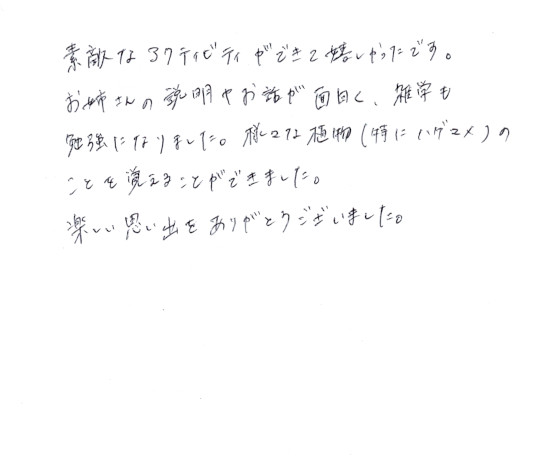 素敵なアクティビティができて嬉しかったです。
お姉さんの説明やお話が面白く、雑学も
勉強になりました。様々な植物(特にハゲマメ)の
ことを覚えることができました。
楽しい思い出をありがとうございました。